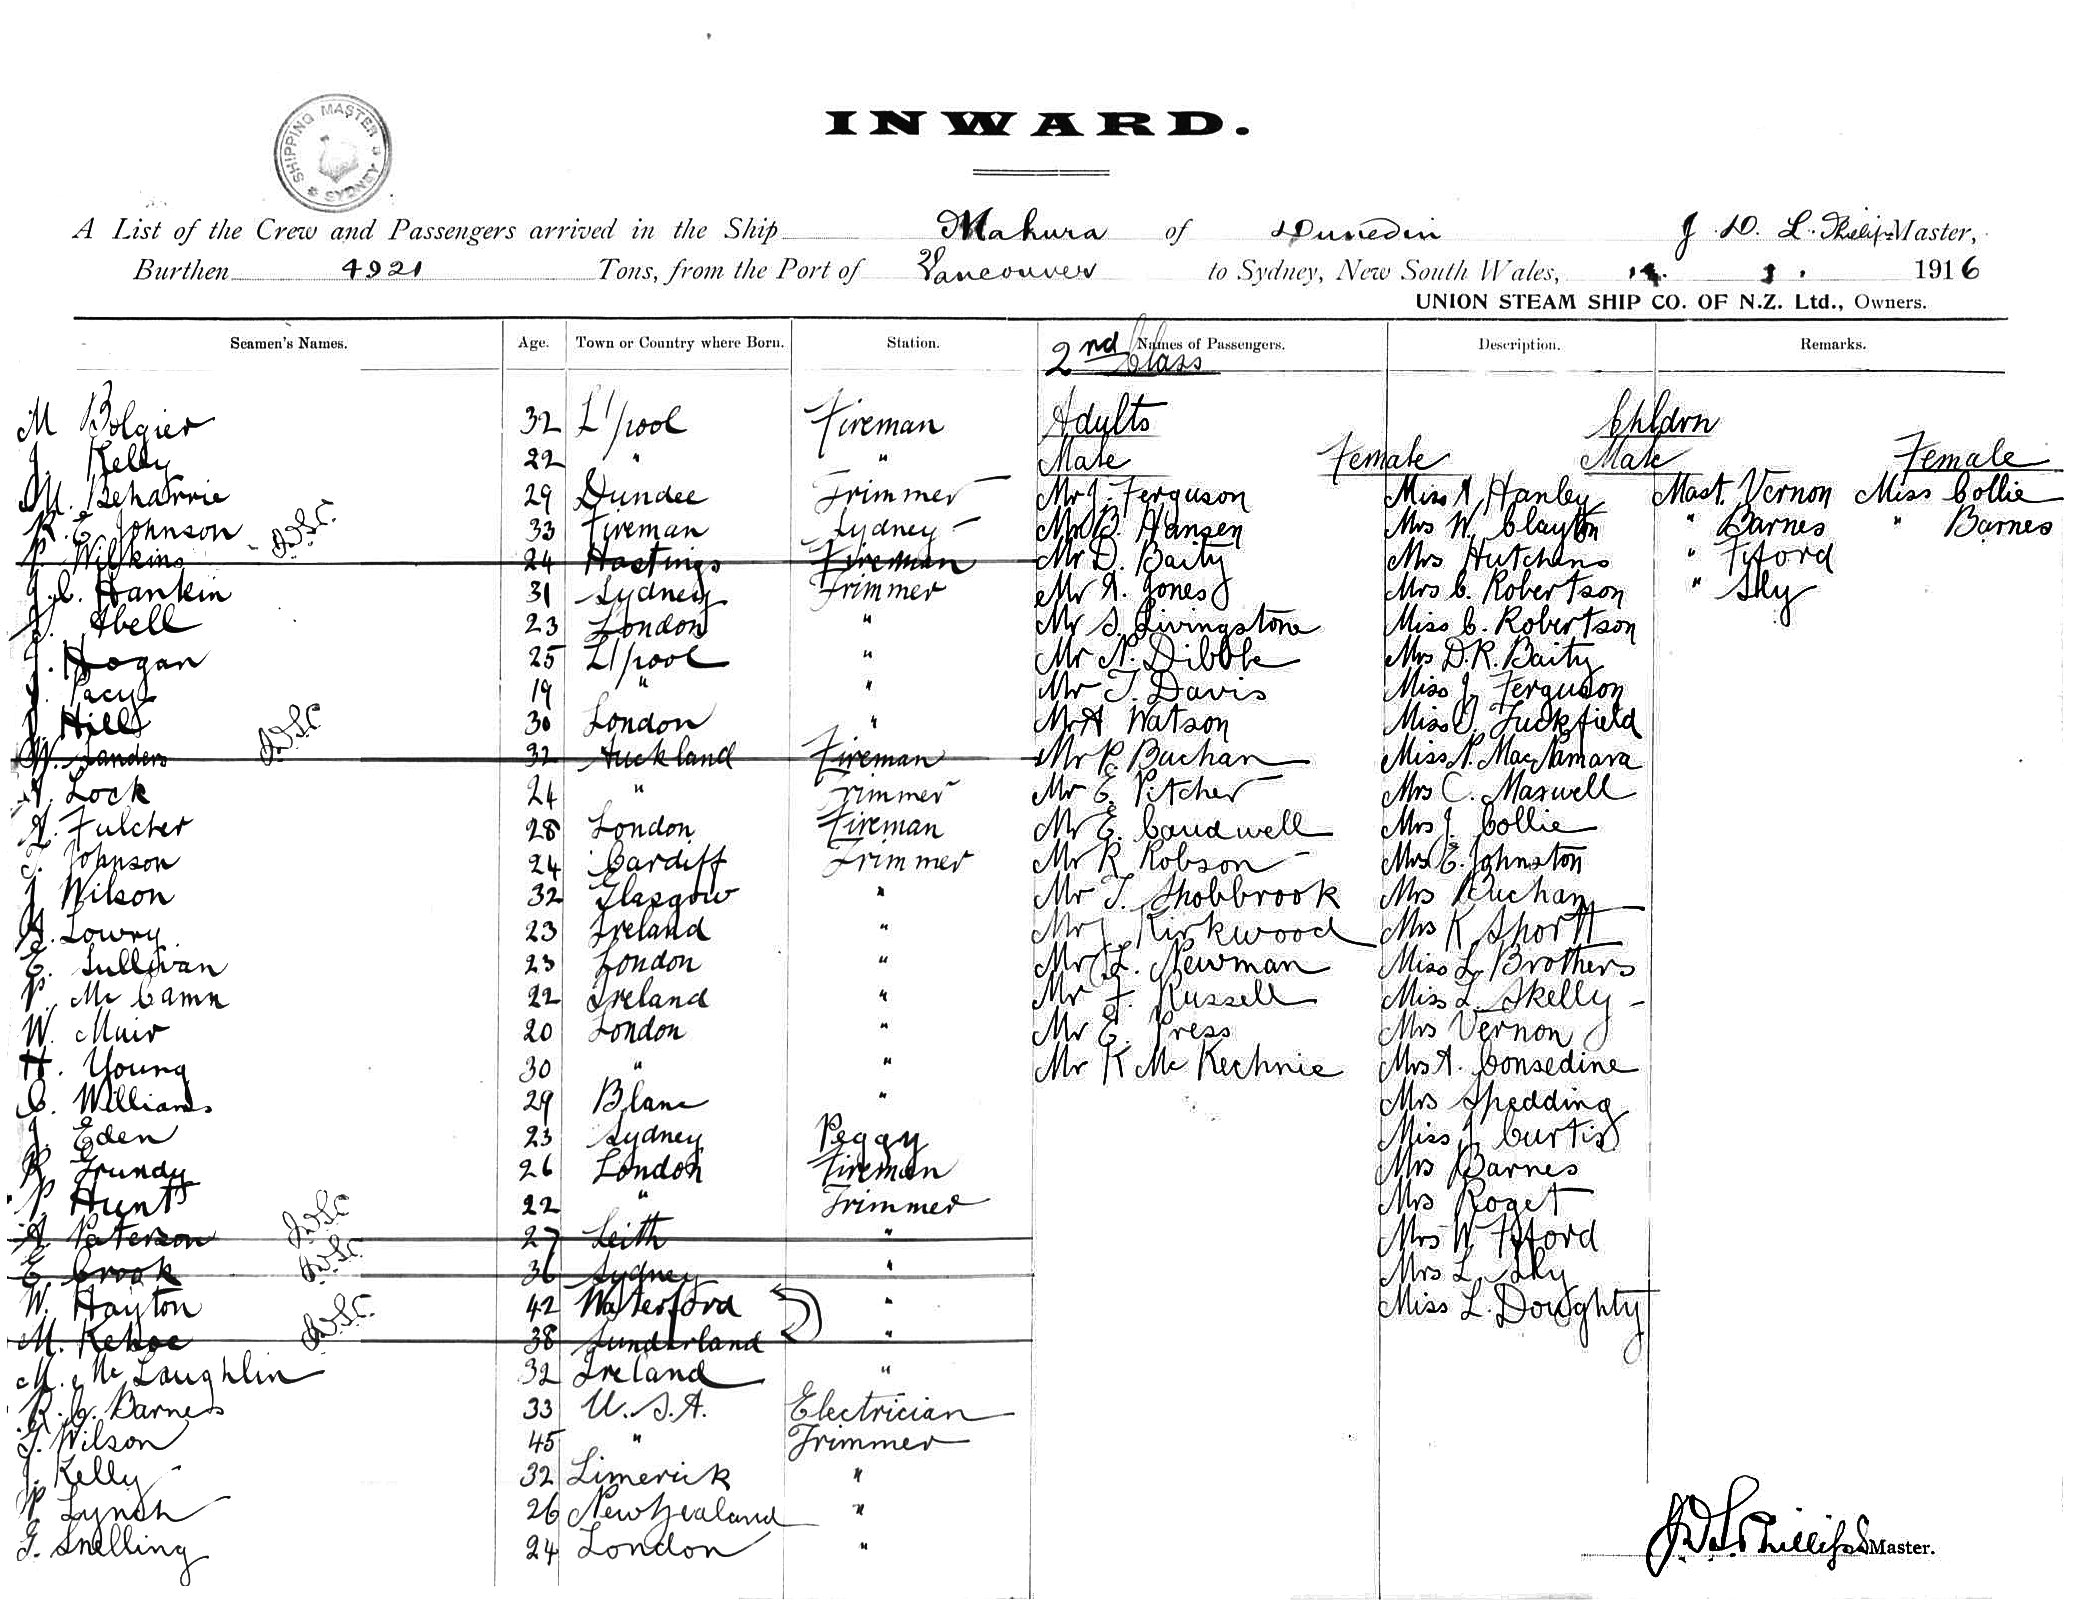 SHIPPING MASTER SYDNEY
INWARD.
A List of the Crew and Passengers arrived in the Ship Makura of Dunedin J. D. L. Phillips Master,
Burthen 4921 Tons, from the Port of Vancouver to Sydney, New South Wales, 1916
UNION STEAM SHIP CO. OF N.Z. Ltd., Owners.
Seamen's Names. Age. Town or Country where Born. Station. Names of Passengers. Description. Remarks.
2nd Class
M Bolgier 32 L'/pool Fireman Adults Chldrn
J. Kelly 22 " " Male Female Male Female
M. Beharrie 29 Dundee Trimmer Mr J. Ferguson Miss A Hanley Mast. Vernon Miss Collie
R. E. Johnson 33 Fireman Sydney Mr B. Hansen Mrs W. Clayton " Barnes " Barnes
P. Wilkins 24 Hastings Fireman Mr D. Baity Mrs Hutchens " Fford
J. C. Hankin 31 Sydney Trimmer Mr A. Jones Mrs C. Robertson " Sly
J. Abell 23 London " Mr S. Livingstone Miss C. Robertson
J. Hogan 25 L'/pool " Mr N. Dibble Mrs D. R. Baity
J. Pacy 19 " " Mr T. Davis Miss J. Ferguson
J. Hill 30 London " Mr A Watson Miss O. Tuckfield
W. Sanders 32 Auckland Fireman Mr P. Buchan Miss N. MacNamara
Lock 24 " Trimmer Mr E. Pitcher Mrs C. Maxwell
A. Fulcher 28 London Fireman Mr E. Caudwell Mrs J. Collie
T. Johnson 24 Cardiff Trimmer Mr R Robson Mrs E. Johnston
J Wilson 32 Glasgow " Mr T. Shobbrook Mrs Buchan
A. Lowry 23 Ireland " Mr J Kirkwood Mrs K Shortt
E. Sullivan 23 London " Mr L. Newman Miss L. Brothers
P. McCamn 22 Ireland " Mr F. Russell Miss L. Skelly
W. Muir 20 London " Mr E. Press Mrs Vernon
H. Young 30 " " Mr K McKechnie Mrs A. Consedine
C. Williams 29 Blane " Mrs Spedding
J. Eden 23 Sydney Peggy Miss J. Curtis
R. Grundy 26 London Fireman Mrs Barnes
P Hunt 22 " Trimmer Mrs Roget
A. Paterson 27 Leith " Mrs W. Fford
E. Crook 36 Sydney " Mrs L. Sly
W. Hayton 42 Waterford " Miss L. Doughty
M. Kehoe 38 Sunderland "
M. McLaughlin 32 Ireland "
R. C. Barnes 33 U.S.A. Electrician
G. Wilson 45 " Trimmer
J. Kelly 32 Limerick "
P. Lynch 26 New Zealand "
G. Snelling 24 London "
J. D. L. Phillips Master.